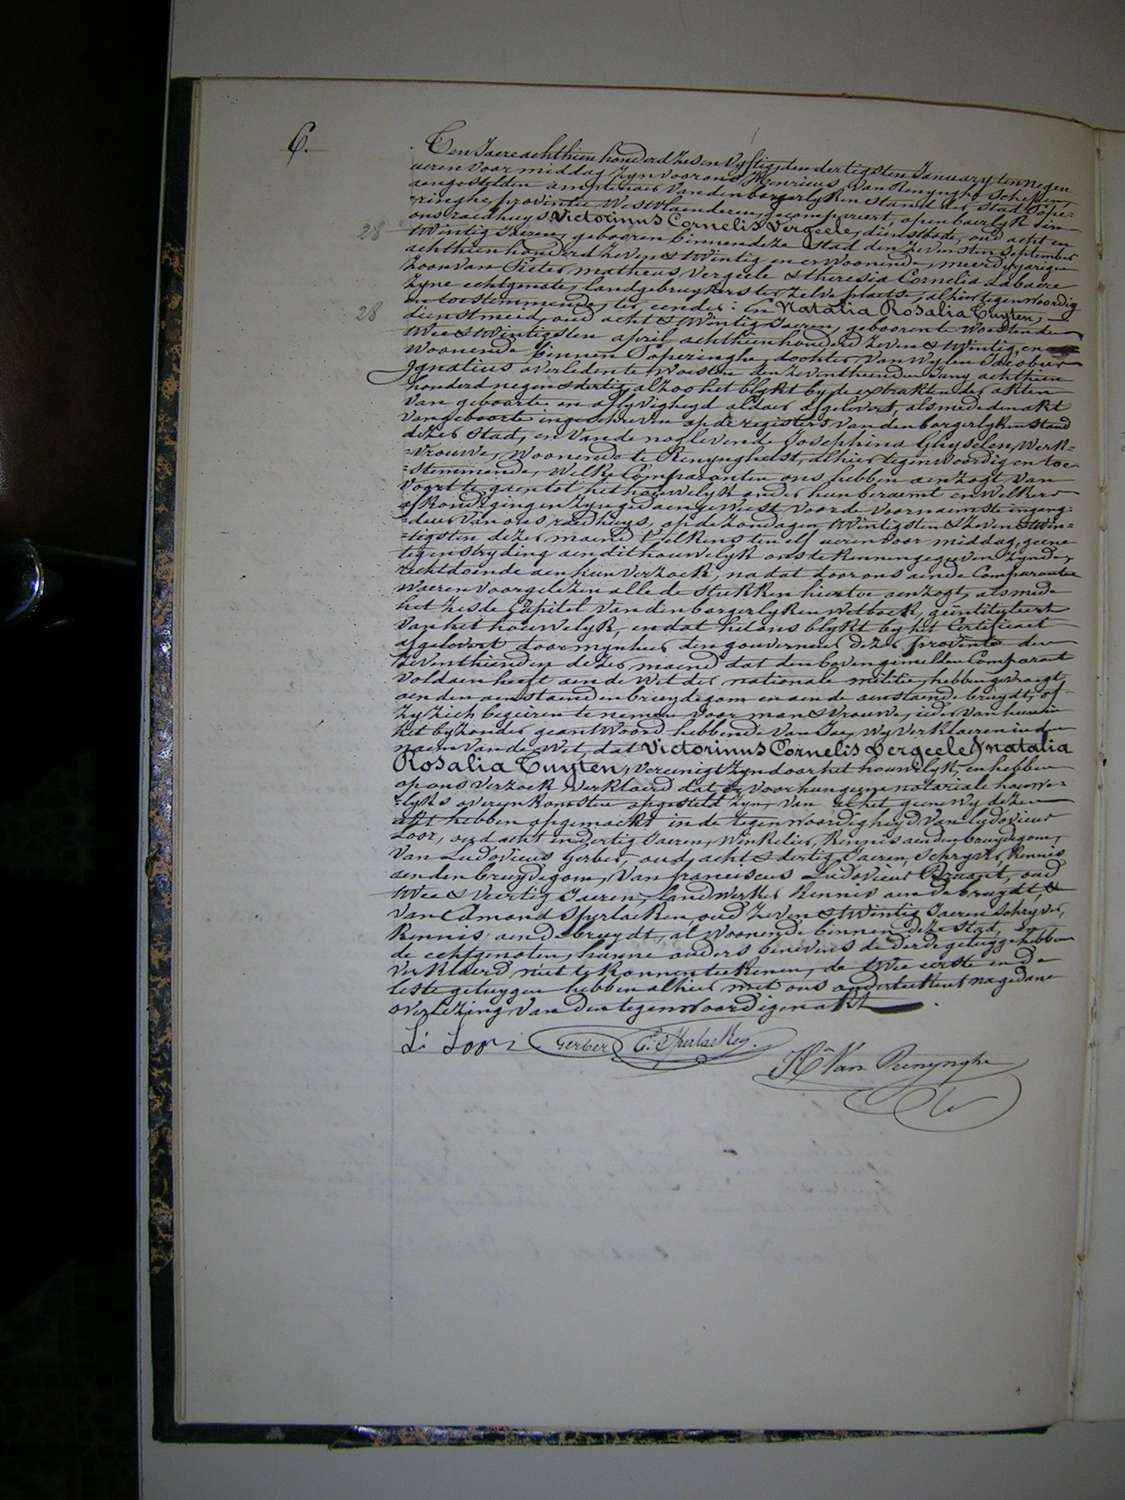 6.
Ten Jaere achthien honderd zes en vyftig, den dertigsten January ten negen
ueren voor middag zyn voor ons Henricus Van Renynghe Schepen,
aengestelden amptenaer van den borgerlyken stand der stad Pope-
ringhe, provintie Westvlaenderen, gecompareert, openbaerlyk binn
ons raedhuys Victorinus Cornelis Vergeele, dienstbode, oud acht en
28 twintig Jaeren, gebooren binnen deze Stad den zevensten September
achthien honderd zeven & twintig en er woonende, meerderjarigen
Zoon van Pieter matheus Vergeele & theresia Cornelia
zyne echtgenote, landgebruykers ter zelve plaets, alhier tegenwoordig
en toestemmende, ter eender: En Natalia Rosalia Tuyten,
28 dienstmeid, oud acht & twintig Jaeren, geboren te Woesten den
twee & twintigsten april achthien honderd zeven & twintig, en
woonende binnen Poperinghe, dochter van wylen Jacobus
Ignatius overleden te Woesten den zeventhienden Juny achthien
honderd negen & dertig, alzoo het blykt by de extrakten der akten
van geboorte en aflyvigheyd aldaer afgelevert, alsmede den akt
van geboorte ingeschreven op de registers van den borgerlyken stand
dezer Stad, en van de nog levende Josephina Ghyselen, Werk-
-vrouwe, woonende te Renynghelst, alhier tegenwoordig en toe-
-stemmende, Welke Comparanten ons hebben aenzogt van
voort te gaen tot het houwelyk onder hun beraemt en welkers
afkondigingen zyn gedaen geweest voor de voornaemste ingang-
-deur van ons raedhuys, op de zondagen twintigsten & zeven & twin-
-tigsten dezer maend telkens ten elf ueren voor middag, geene
tegenstryding aen dit houwelyk ons te kennen gegeven zynde,
rechtdoende aen hun verzoek, na dat door ons aen de Comparanten
waeren voorgelezen alle de stukken hier toe aenzogt, alsmede
het zesde Capitel van den borgerlyken wetboek, geïntituleert
van het houwelyk, en dat het ons blykt by het Certificaet
afgelevert door mynheer den gouverneur dezer provintie den
zeventhienden dezer maend dat den bovengemelden Comparant
voldaen heeft aen de wet der nationale militie, hebben gevraegt
aen den aenstaenden bruydegom en aen de aenstaende bruydt, of
zy zich begeiren te nemen voor man & vrouwe, ieder van hun in
het byzonder geantwoord hebbende van Jae, wy verklaeren in den
naem van de Wet, dat Victorinus Cornelis Vergeele & natalia
Rosalia Tuyten, vereenigt zyn door het houwelyk, en hebben
op ons verzoek verklaerd dat er voor hun geene notariale houwe-
-lyks overeynkomsten opgesteld zyn, van al het geene wy dezen
akt hebben opgemaekt in de tegenwoordigheyd van Ludovicus
Loor, oud acht en dertig Jaeren, Winkelier, Kennis aen den bruydegom,
van Ludovicus Gerber, oud acht & dertig Jaeren, Schryver, Kennis
aen den bruydegom, van franciscus Ludovicus Braart, oud
twee & veertig Jaeren, landwerker Kennis aen de bruydt, &
van Edmond Sperlacken, oud zeven & twintig Jaeren Schryver,
Kennis aen de bruydt, al woonende binnen deze Stad, En
de echtgenoten, hunne ouders benevens de derde getuyge hebben
verklaerd niet te konnen teekenen, de twee eerste en de
leste getuygen hebben alhier met ons onderteekent na gedane
overlezing van den tegenwoordigen akt.
L. Loor Gerber E. Sperlacken.
Hri Van Renynghe